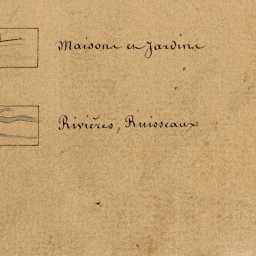 Maisons et Jardins
Rivières, Ruisseaux